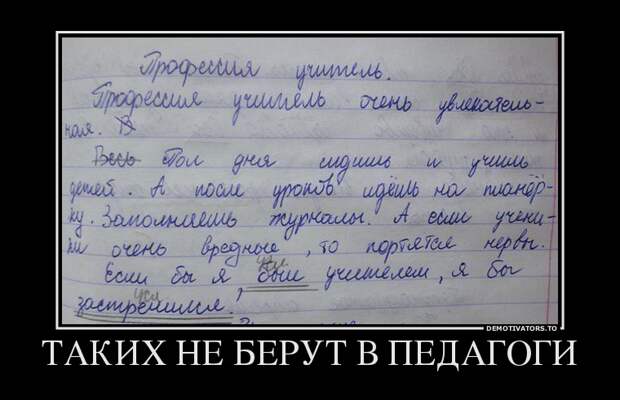 Профессия учитель.
Профессия учитель очень увлекатель-
ная. В
Весь Пол дня сидишь и учишь
детей. А после уроков идёшь на планёр-
ку. Заполняешь журналы. А если учени-
ки очень вредные, то портятся нервы.
усл.
Если бы я был учителем, я бы
усл
застрелился.
DEMOTIVATORS.TO
ТАКИХ НЕ БЕРУТ В ПЕДАГОГИ